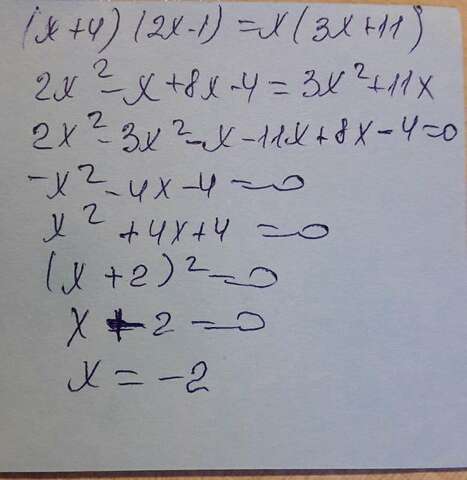 (x+4)(2x-1)=x(3x+11)
2x²-x+8x-4=3x²+11x
2x²-3x²-x-11x+8x-4=0
-x²-4x-4=0
x²+4x+4=0
(x+2)²=0
x+2=0
x=-2